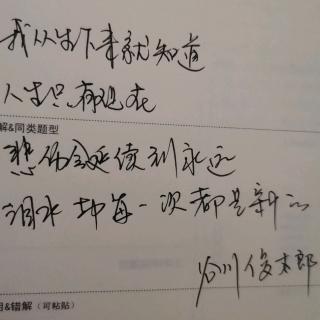 我从生下来就知道
人生只有现在
解&同类题型
悲伤会延续到永远
泪水却每一次都是新的
谷川俊太郎
因&错解（可粘贴）